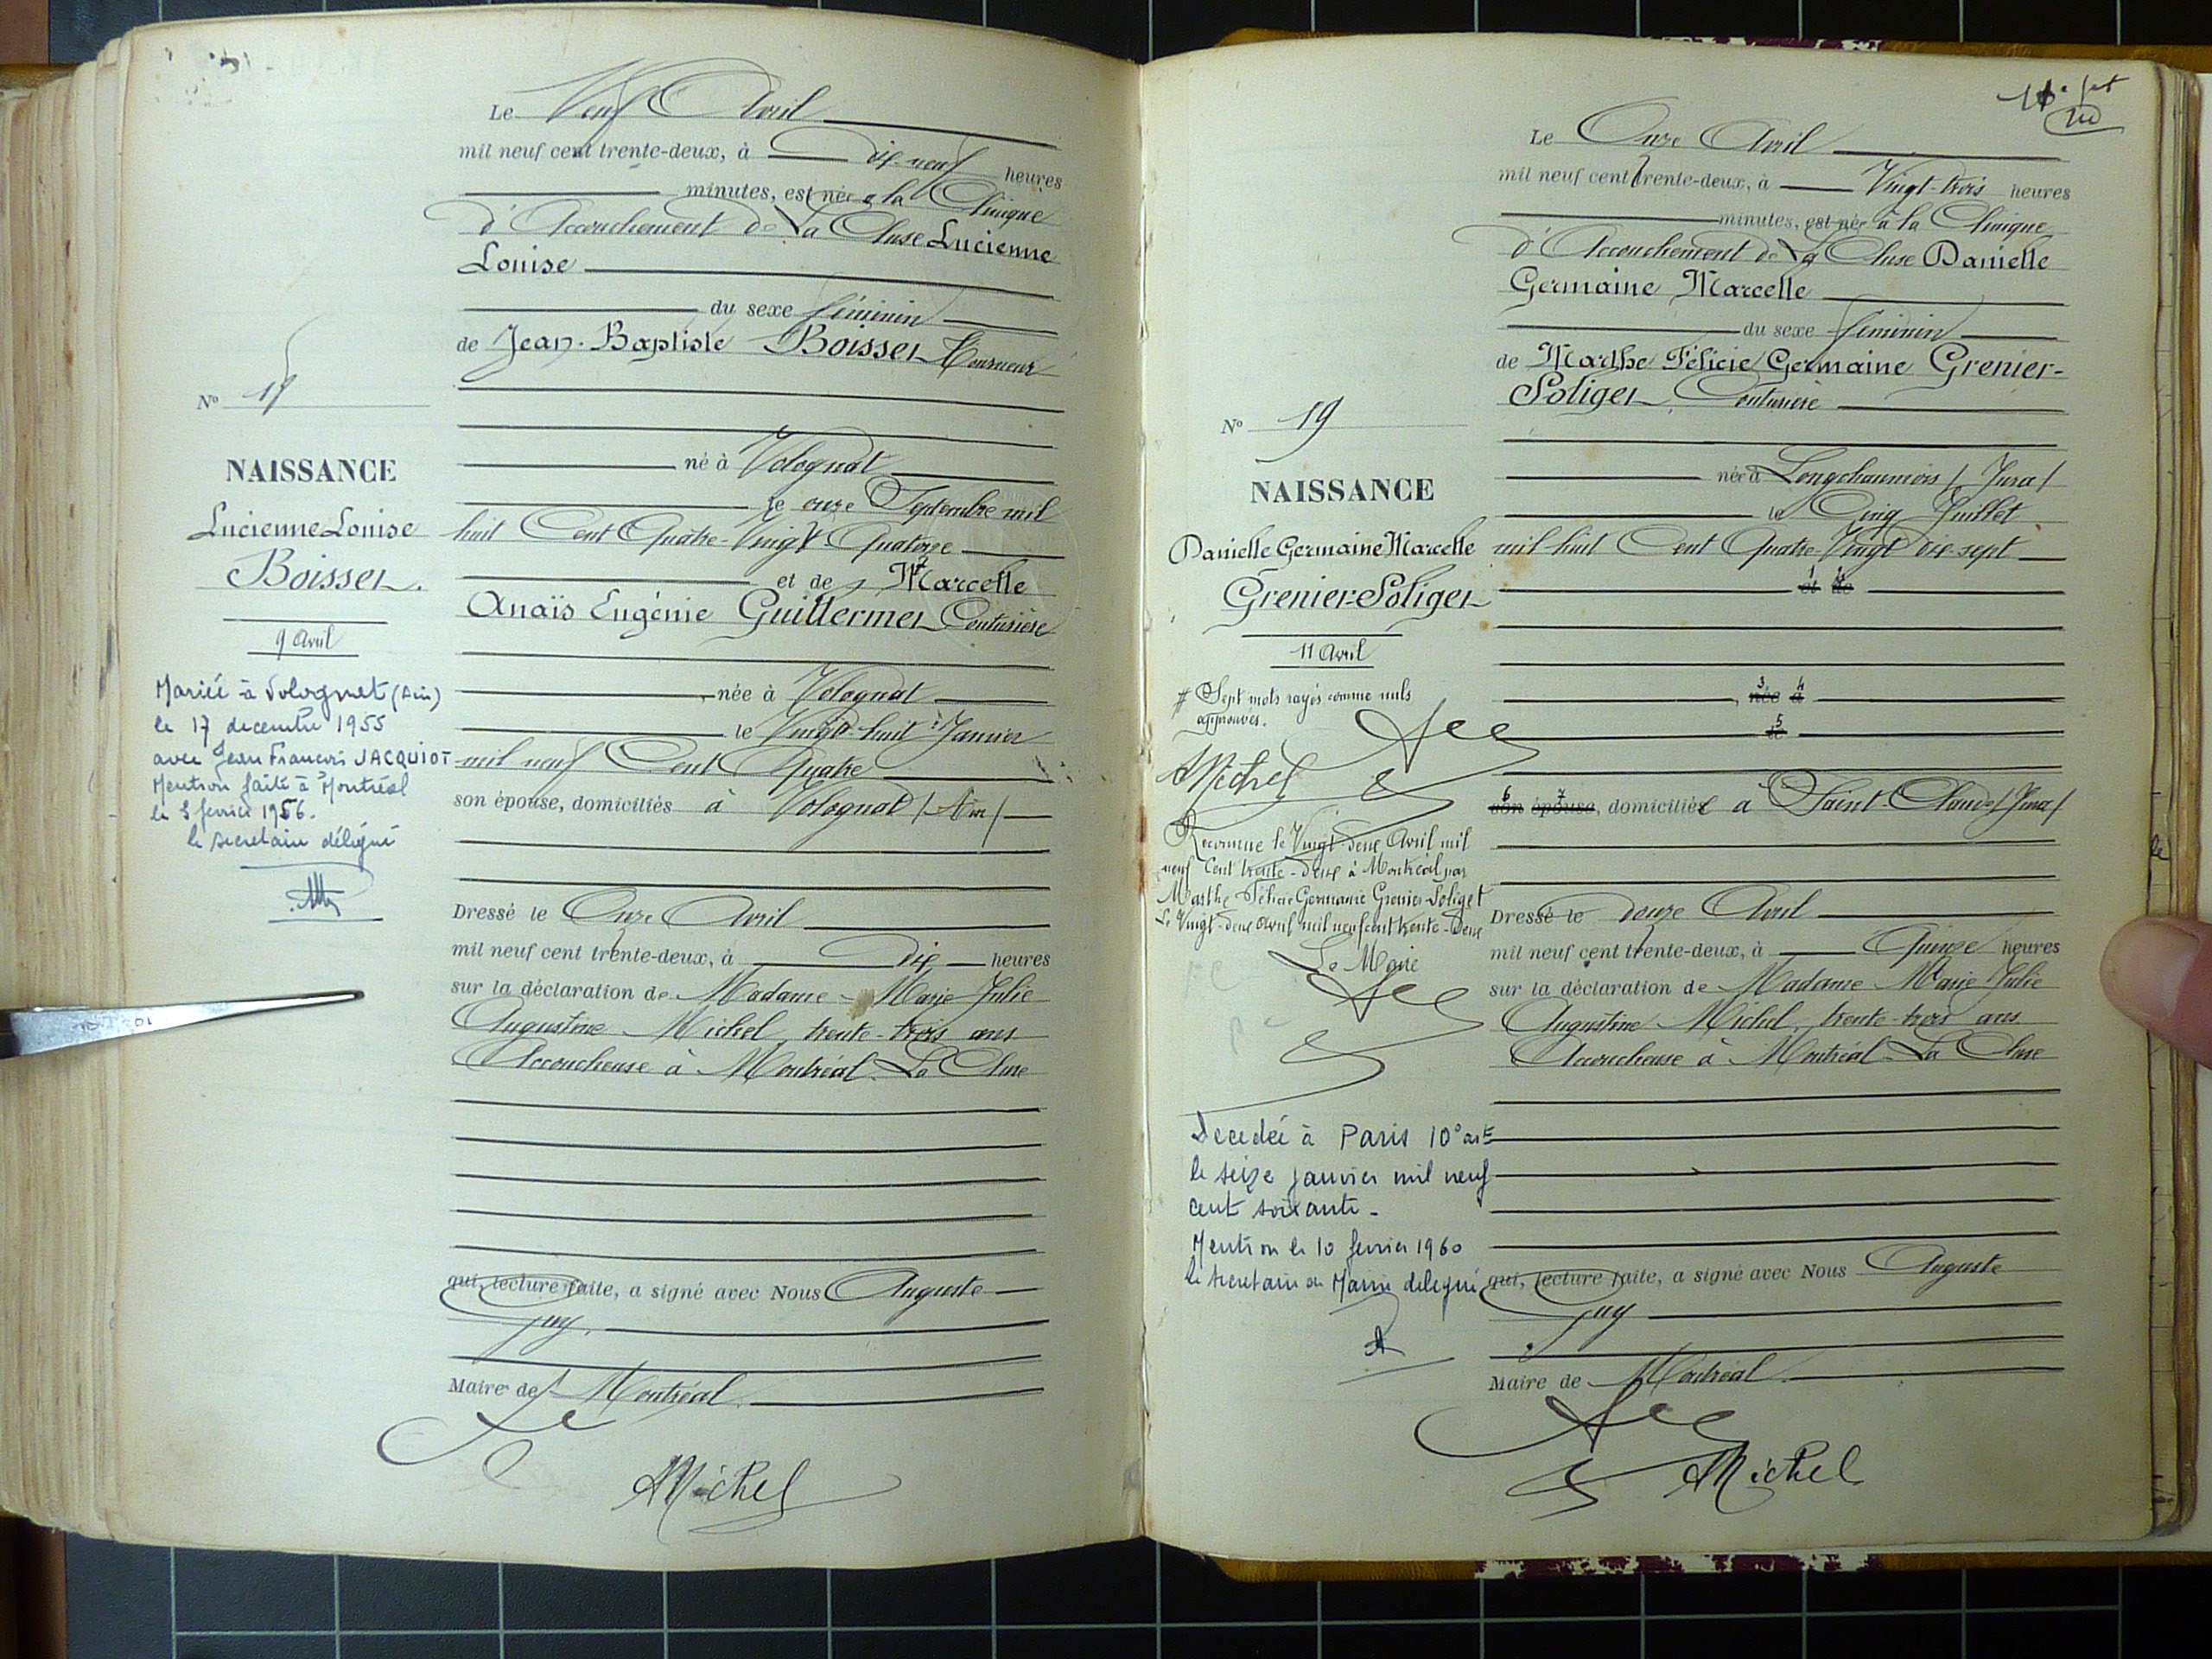 Le Neuf Avril
mil neuf cent trente-deux, à dix-neuf heures
minutes, est née à la Clinique
d'Accouchement de La Cluse Lucienne
Louise
du sexe féminin
de Jean-Baptiste Boisset Tourneur
né à Volognat
le onze Septembre mil
huit Cent Quatre-Vingt Quatorze
et de Marcelle
Anaïs Eugénie Guillermet Couturière
née à Volognat
le Vingt-huit Janvier
mil neuf Cent Quatre
son épouse, domiciliés à Volognat (Ain)
Dressé le Onze Avril
mil neuf cent trente-deux, à Dix heures
sur la déclaration de Madame Marie Julie
Augustine Michel, trente-trois ans
Accoucheuse à Montréal-La Cluse
qui, lecture faite, a signé avec Nous Auguste
Guy
Maire de Montréal
AMichel
No 18
NAISSANCE
Lucienne Louise
Boisset.
9 Avril
Mariée à Volognat (Ain)
le 17 décembre 1955
avec Jean François JACQUIOT
Mention faite à Montréal
le février 1956.
le secrétaire délégué
Le Onze Avril
mil neuf cent trente-deux, à Vingt-trois heures
minutes, est née à la Clinique
d'Accouchement de La Cluse Danielle
Germaine Marcelle
du sexe féminin
de Marthe Félicie Germaine Grenier-
Soliget, Couturière
née à Longchaumois (Jura)
le Cinq Juillet
mil huit Cent Quatre-Vingt dix-sept
1 2
et de
3 4
, née à
5
le
6 7
son épouse, domiciliée à Saint-Claude (Jura)
Dressé le douze Avril
mil neuf cent trente-deux, à Quinze heures
sur la déclaration de Madame Marie Julie
Augustine Michel, trente-trois ans
Accoucheuse à Montréal-La Cluse
qui, lecture faite, a signé avec Nous Auguste
Guy
Maire de Montréal
AMichel
No 19
NAISSANCE
Danielle Germaine Marcelle
Grenier-Soliget
11 Avril
# Sept mots rayés comme nuls
approuvés.
AMichel
Reconnue le Vingt-deux Avril mil
neuf Cent trente-deux à Montréal par
Marthe Félicie Germaine Grenier-Soliget
Le Vingt-deux Avril mil neuf cent trente-deux
Le Maire
Decedée à Paris 10° art
le seize janvier mil neuf
cent soixante -
Mention le 10 février 1960
le secrétaire de Mairie délégué